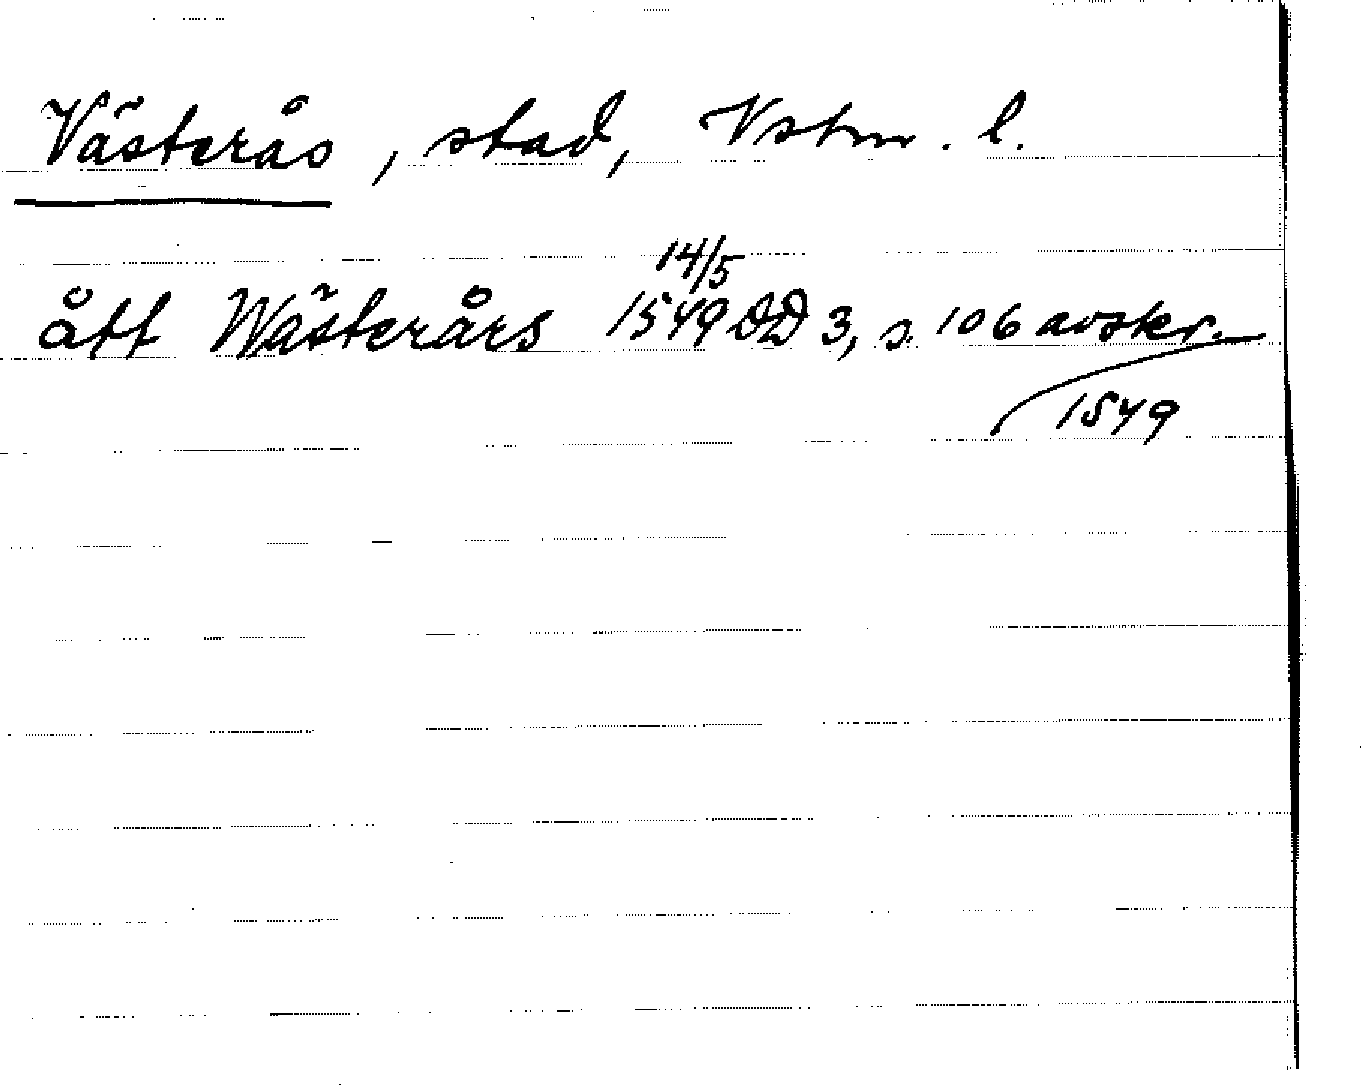 Västerås, stad, Vstm. l.
14/5
ått Wästerårs 1549 DD 3, s. 106 avskr.
1549